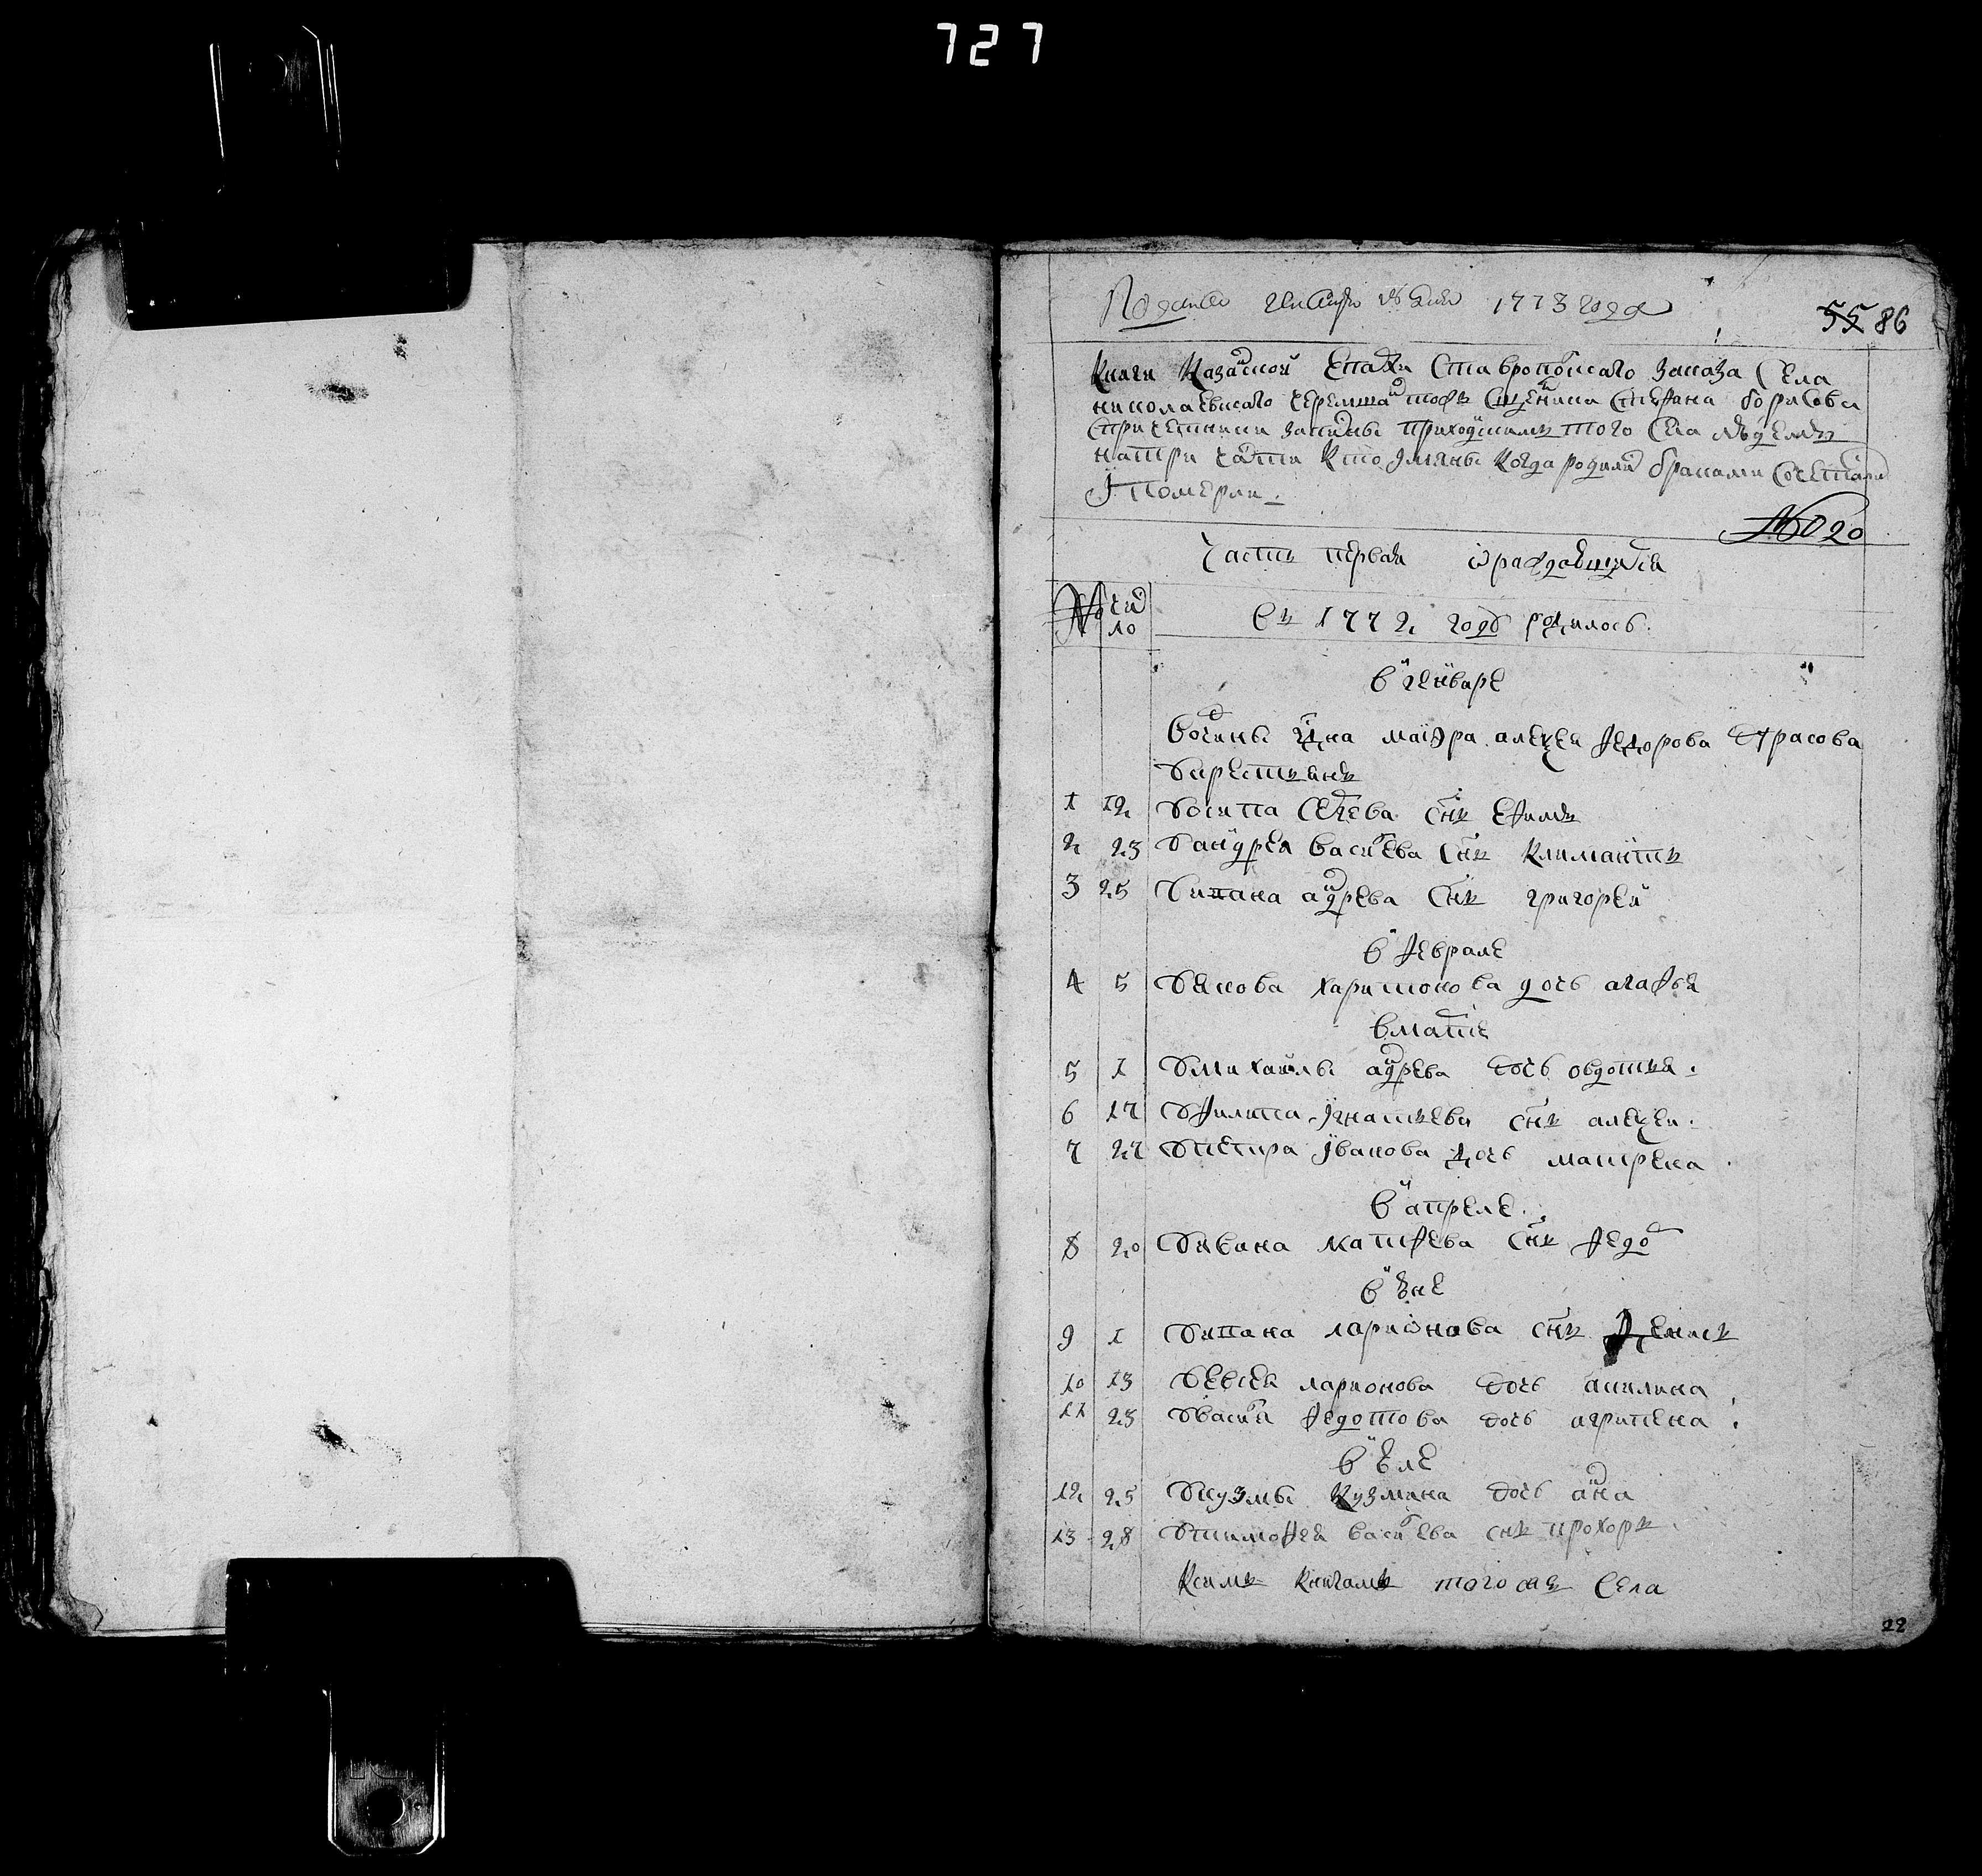 727
Подано генваря 18 дня 1773 года
55 86
Книги Казанской Епархи Ставропольского Заказа Села
николаевского черемшан тожъ Сщенника Стефана борисова
спричетники записные приходскимъ того Села людемъ
натри части Кто имяны Когда родились браками Сочетались
И Померли.
№ 020
Часть первая о раждающихся
№ число Въ 1772 годѣ родилось.
в генваре
вочины гдна маиора алеѯея Федорова
крестьянъ
1 12 У осипа сергеева снъ Ефимъ
2 23 У андрея васильева снъ Климантъ
3 25 У степана андреева снъ григорей
в Феврале
4 5 У якова харитонова дочь агафья
в марте
5 1 У михаилы андреева дочь овдотья.
6 17 У Филипа Игнатьева снъ алеѯеи.
7 27 У петра Иванова дочь матрена.
в апреле.
8 20 У ивана матфеева снъ Федор
в юне
9 1 У степана ларионова снъ Денисъ
10 13 У евсея ларионова дочь акилина
11 23 У василья Федотова дочь агрипена
в юле
12 25 У кузмы Кузмина дочь анна
13 28 У тимофея васильева снъ прохоръ.
Ксимъ Книгамъ тогожъ Села
22